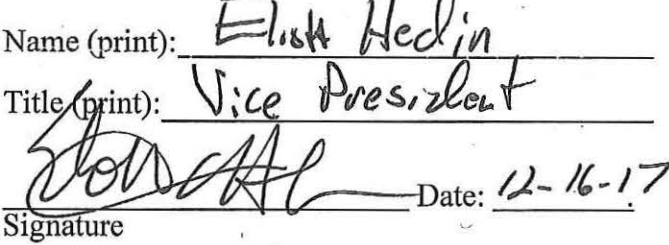 Name (print): Eliott Hedin
Title (print): Vice President
Date: 12-16-17
Signature